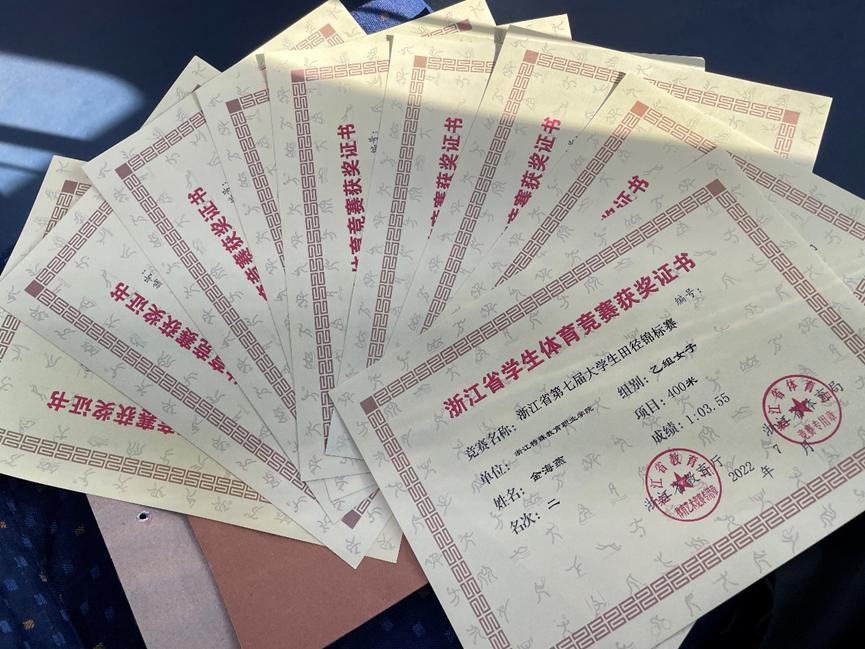 浙江省学生体育竞赛获奖证书
编号:
竞赛名称: 浙江省第七届大学生田径锦标赛
单位: 浙江特殊教育职业学院
组别: 乙组女子
姓名: 金海燕
项目: 400米
名次: 二
成绩: 1:03.55
2022 年 7 月
体育竞赛获奖证书
编号:
获奖证书
育竞赛获奖证书
赛获奖证书
竞赛获奖证书
编号:
竞赛获奖证书
证书